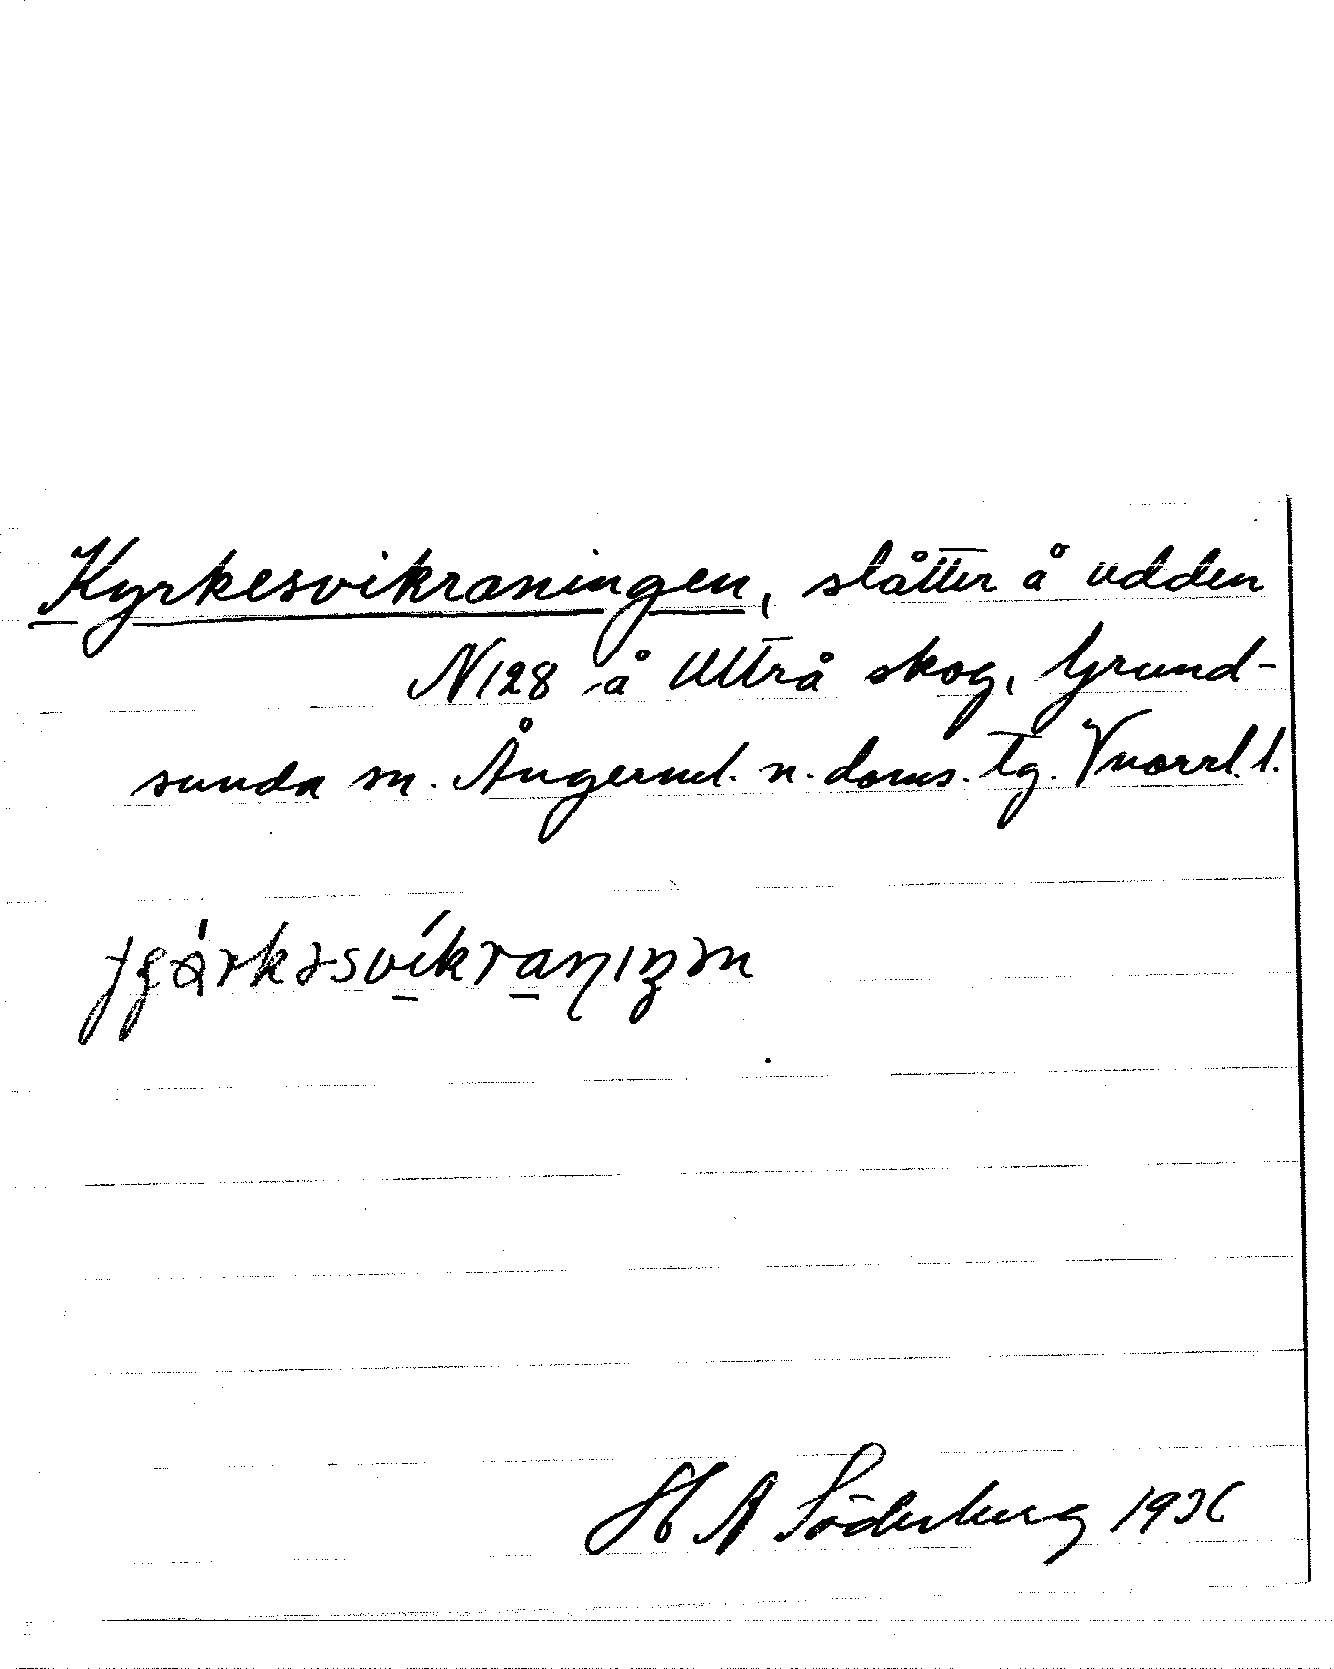 Kyrkesvikraningen, slåtter å udden
N128 å Utträ skog, Grund-
sunda sn. Ångerml. n. doms. tg. Vnorrl. l.
H A Söderberg 1936